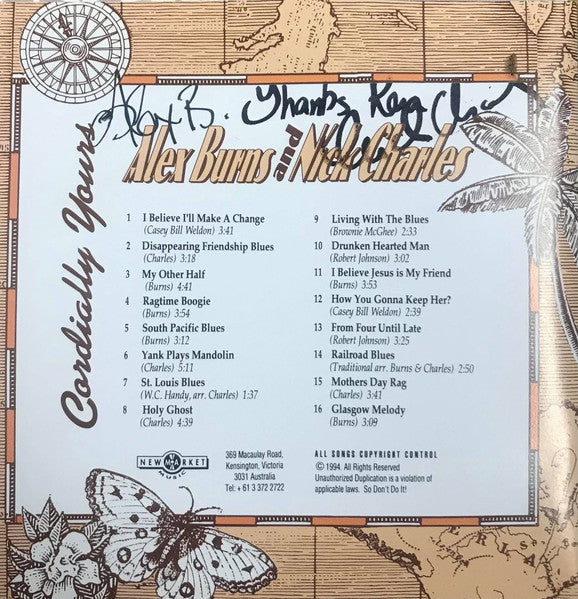 Alex B. Thanks
Cordially Yours
Alex Burns and Nick Charles
1 I Believe I'll Make A Change
(Casey Bill Weldon) 3:41
2 Disappearing Friendship Blues
(Charles) 3:18
3 My Other Half
(Burns) 4:41
4 Ragtime Boogie
(Burns) 3:54
5 South Pacific Blues
(Burns) 3:12
6 Yank Plays Mandolin
(Charles) 5:11
7 St. Louis Blues
(W.C. Handy, arr. Charles) 1:37
8 Holy Ghost
(Charles) 4:39
9 Living With The Blues
(Brownie McGhee) 2:33
10 Drunken Hearted Man
(Robert Johnson) 3:02
11 I Believe Jesus is My Friend
(Burns) 3:53
12 How You Gonna Keep Her?
(Casey Bill Weldon) 2:39
13 From Four Until Late
(Robert Johnson) 3:25
14 Railroad Blues
(Traditional arr. Burns & Charles) 2:50
15 Mothers Day Rag
(Charles) 3:41
16 Glasgow Melody
(Burns) 3:09
NEW MARKET
MUSIC
369 Macaulay Road,
Kensington, Victoria
3031 Australia
Tel: + 61 3 372 2722
ALL SONGS COPYRIGHT CONTROL
© 1994. All Rights Reserved
Unauthorized Duplication is a violation of
applicable laws. So Don't Do It!